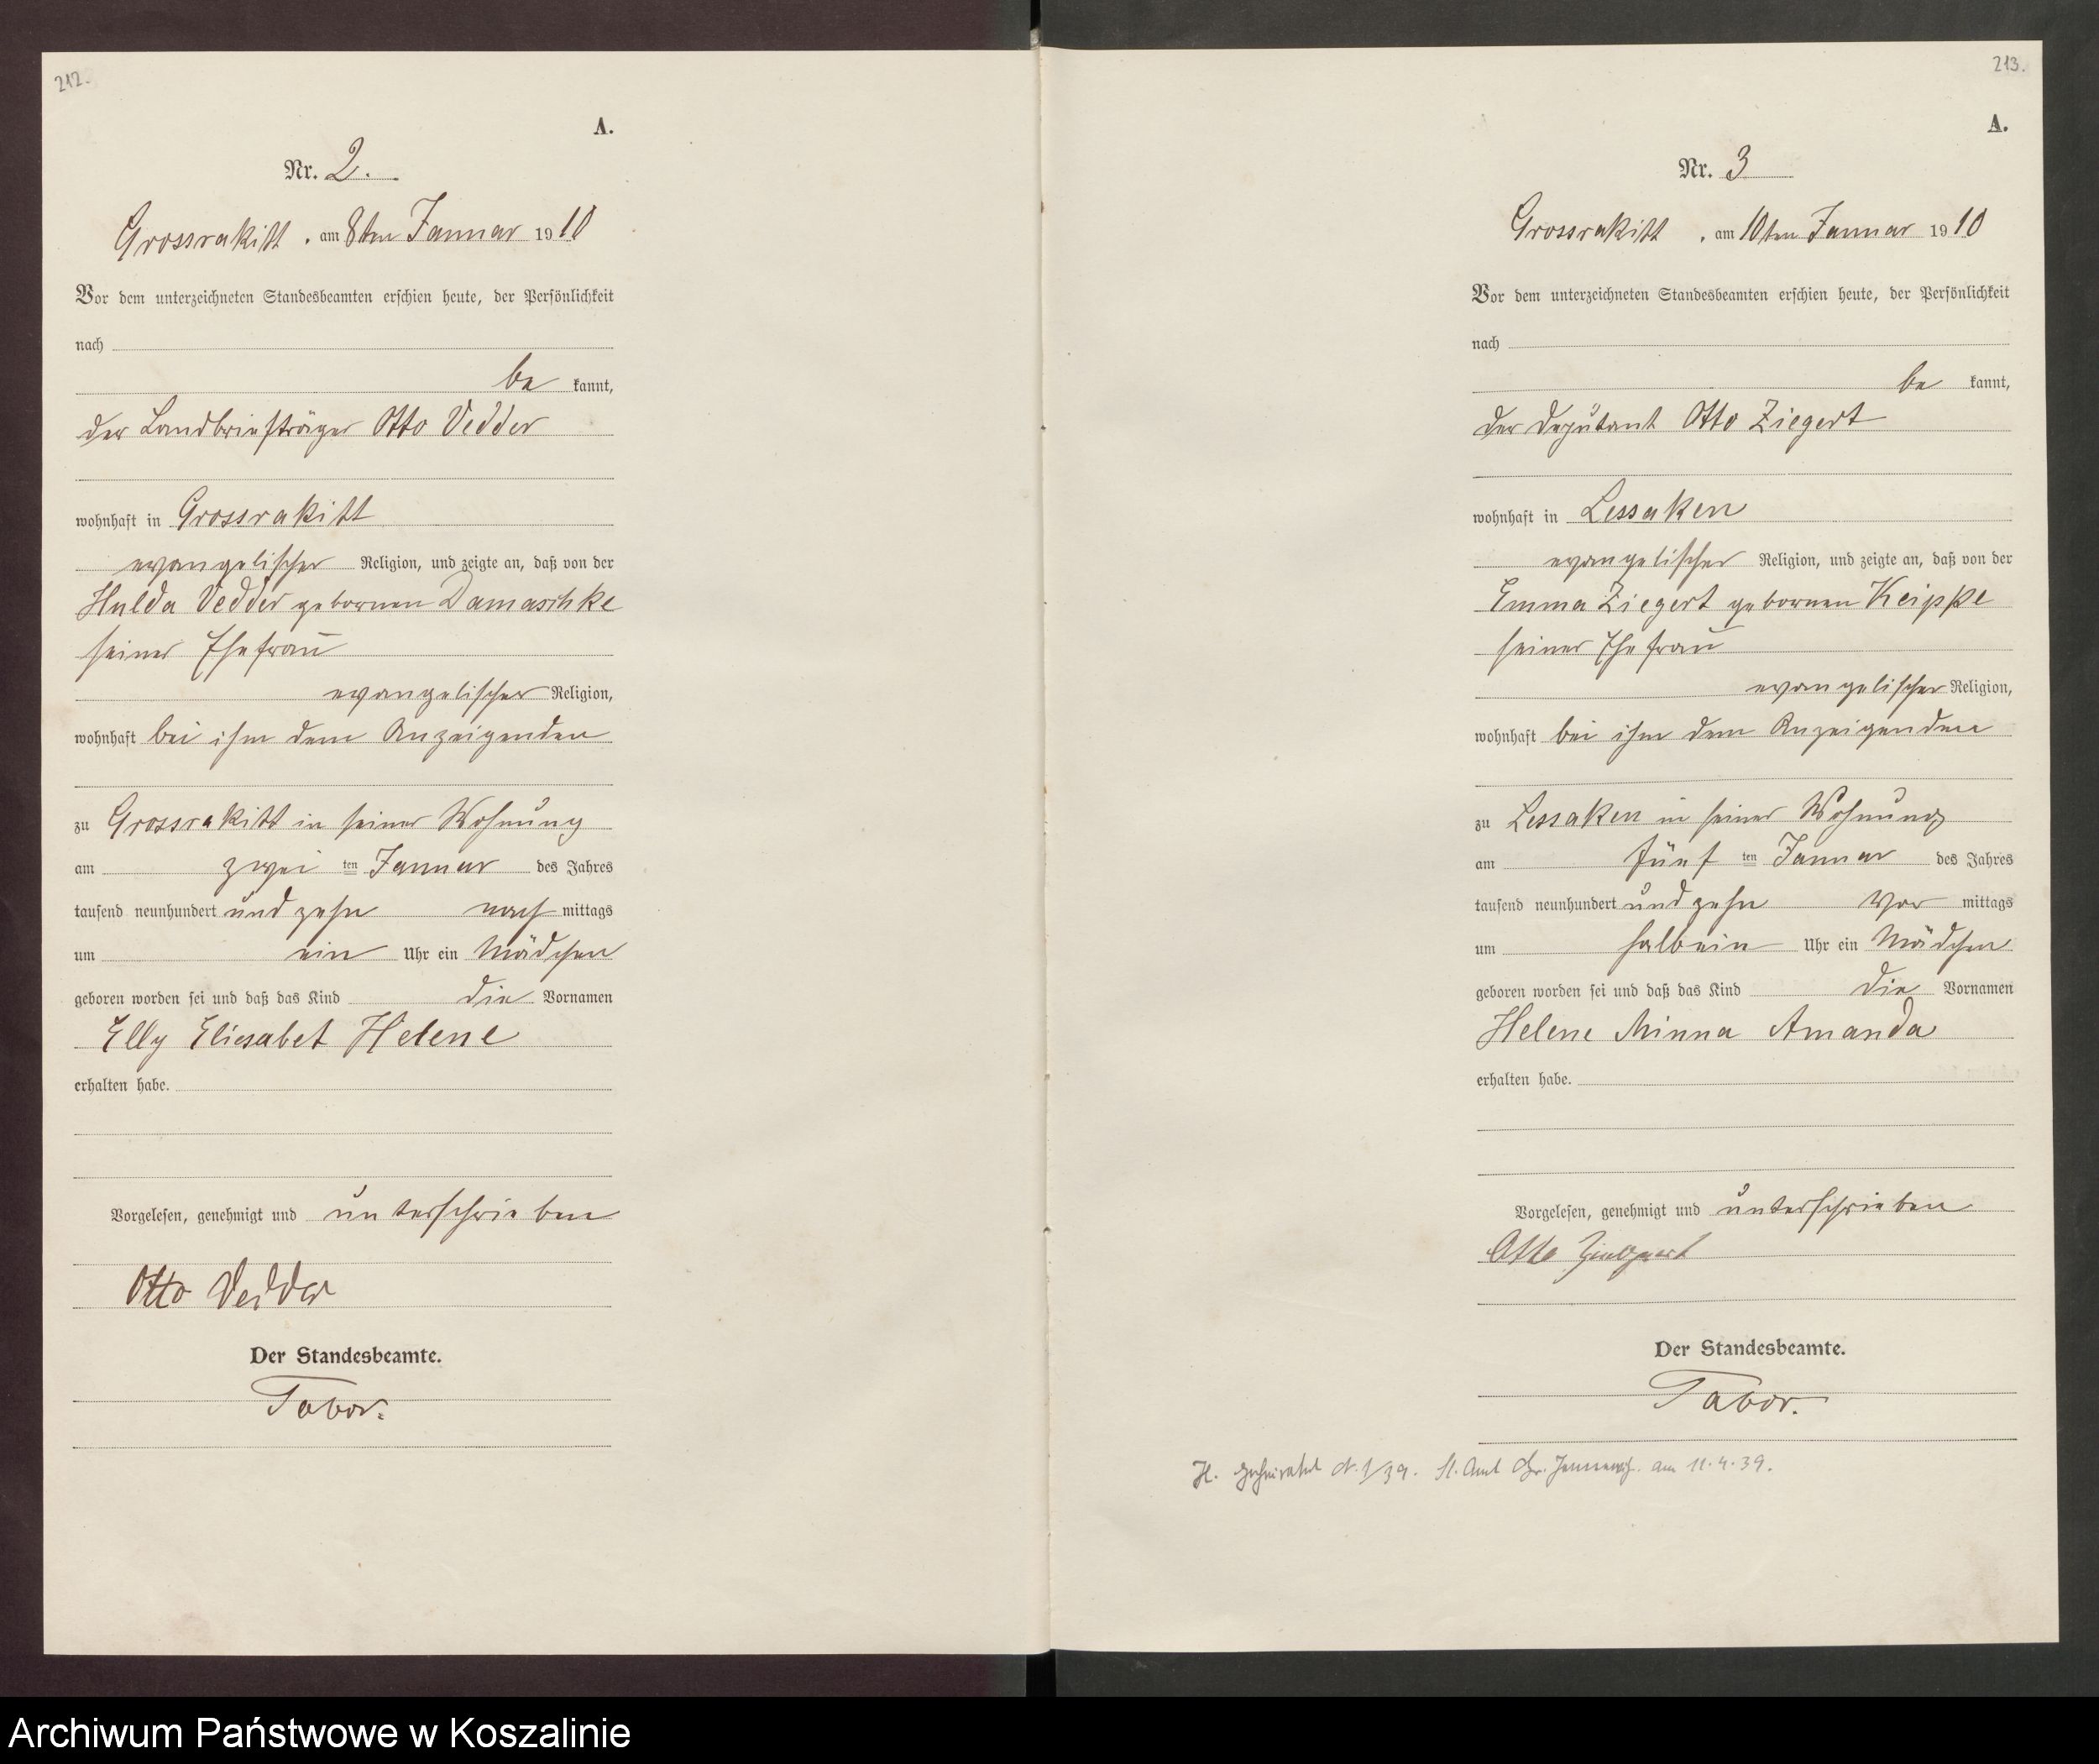 212.
A.
Nr. 2.
Grossrakitt, am 8ten Januar 1910
Vor dem unterzeichneten Standesbeamten erschien heute, der Persönlichkeit
nach
be kannt,
der Landbriefträger Otto Vedder
wohnhaft in Grossrakitt
evangelischer Religion, und zeigte an, daß von der
Hulda Vedder gebornen Damaschke
seiner Ehefrau
evangelischer Religion,
wohnhaft bei ihm dem Anzeigenden
zu Grossrakitt in seiner Wohnung
am zwei ten Januar des Jahres
tausend neunhundert und zehn nach mittags
um ein Uhr ein Mädchen
geboren worden sei und daß das Kind die Vornamen
Elly Eliesabet Helene
erhalten habe.
Vorgelesen, genehmigt und unterschrieben
Otto Vedder
Der Standesbeamte.
Tabor.
213.
A.
Nr. 3
Grossrakitt, am 10ten Januar 1910
Vor dem unterzeichneten Standesbeamten erschien heute, der Persönlichkeit
nach
be kannt,
der Deputant Otto Ziegert
wohnhaft in Lessaken
evangelischer Religion, und zeigte an, daß von der
Emma Ziegert gebornen Keippe
seiner Ehefrau
evangelischer Religion,
wohnhaft bei ihm dem Anzeigenden
zu Lessaken in seiner Wohnung
am fünf ten Januar des Jahres
tausend neunhundert und zehn Vor mittags
um halb ein Uhr ein Mädchen
geboren worden sei und daß das Kind die Vornamen
Helene Minna Amanda
erhalten habe.
Vorgelesen, genehmigt und unterschrieben
Otto
Der Standesbeamte.
Tabor.
1/39. St. Amt Gr. am 11.4.39.
Archiwum Państwowe w Koszalinie